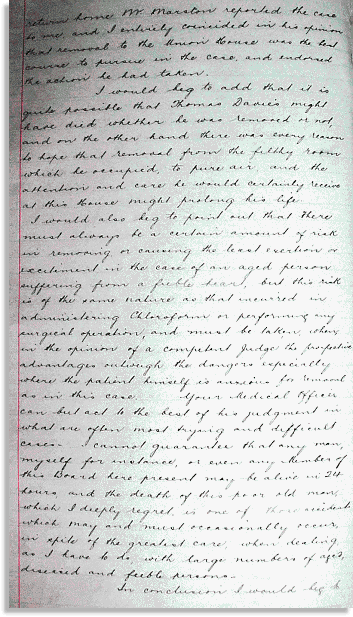 return home Mr. Marston reported the case
to me, and I entirely coincided in his opinion
that removal to the Union House was the best
course to pursue in the case, and endorsed
the action he had taken.
I would beg to add that it is
quite possible that Thomas Davies might
have died whether he was removed or not,
and on the other hand there was every reason
to hope that removal from the filthy room
which he occupied, to pure air, and the
attention and care he would certainly receive
at this House might prolong his life.
I would also beg to point out that there
must always be a certain amount of risk
in removing or causing the least exertion or
excitement in the case of an aged person
suffering from a feeble heart, but this risk
is of the same nature as that incurred in
administering Chloroform or performing any
surgical operation, and must be taken, when
in the opinion of a competent Judge the prospective
advantages outweigh the dangers especially
where the patient himself is anxious for removal
as in this case. Your Medical Officer
can but act to the best of his judgment in
what are often most trying and difficult
cases. I cannot guarantee that any man,
myself for instance, or even any Member of
this Board here present may be alive in 24
hours, and the death of this poor old man,
which I deeply regret, is one of those accidents
which may and must occasionally occur,
in spite of the greatest care, when dealing
as I have to do, with large numbers of aged,
diseased and feeble persons.
In conclusion I would beg to